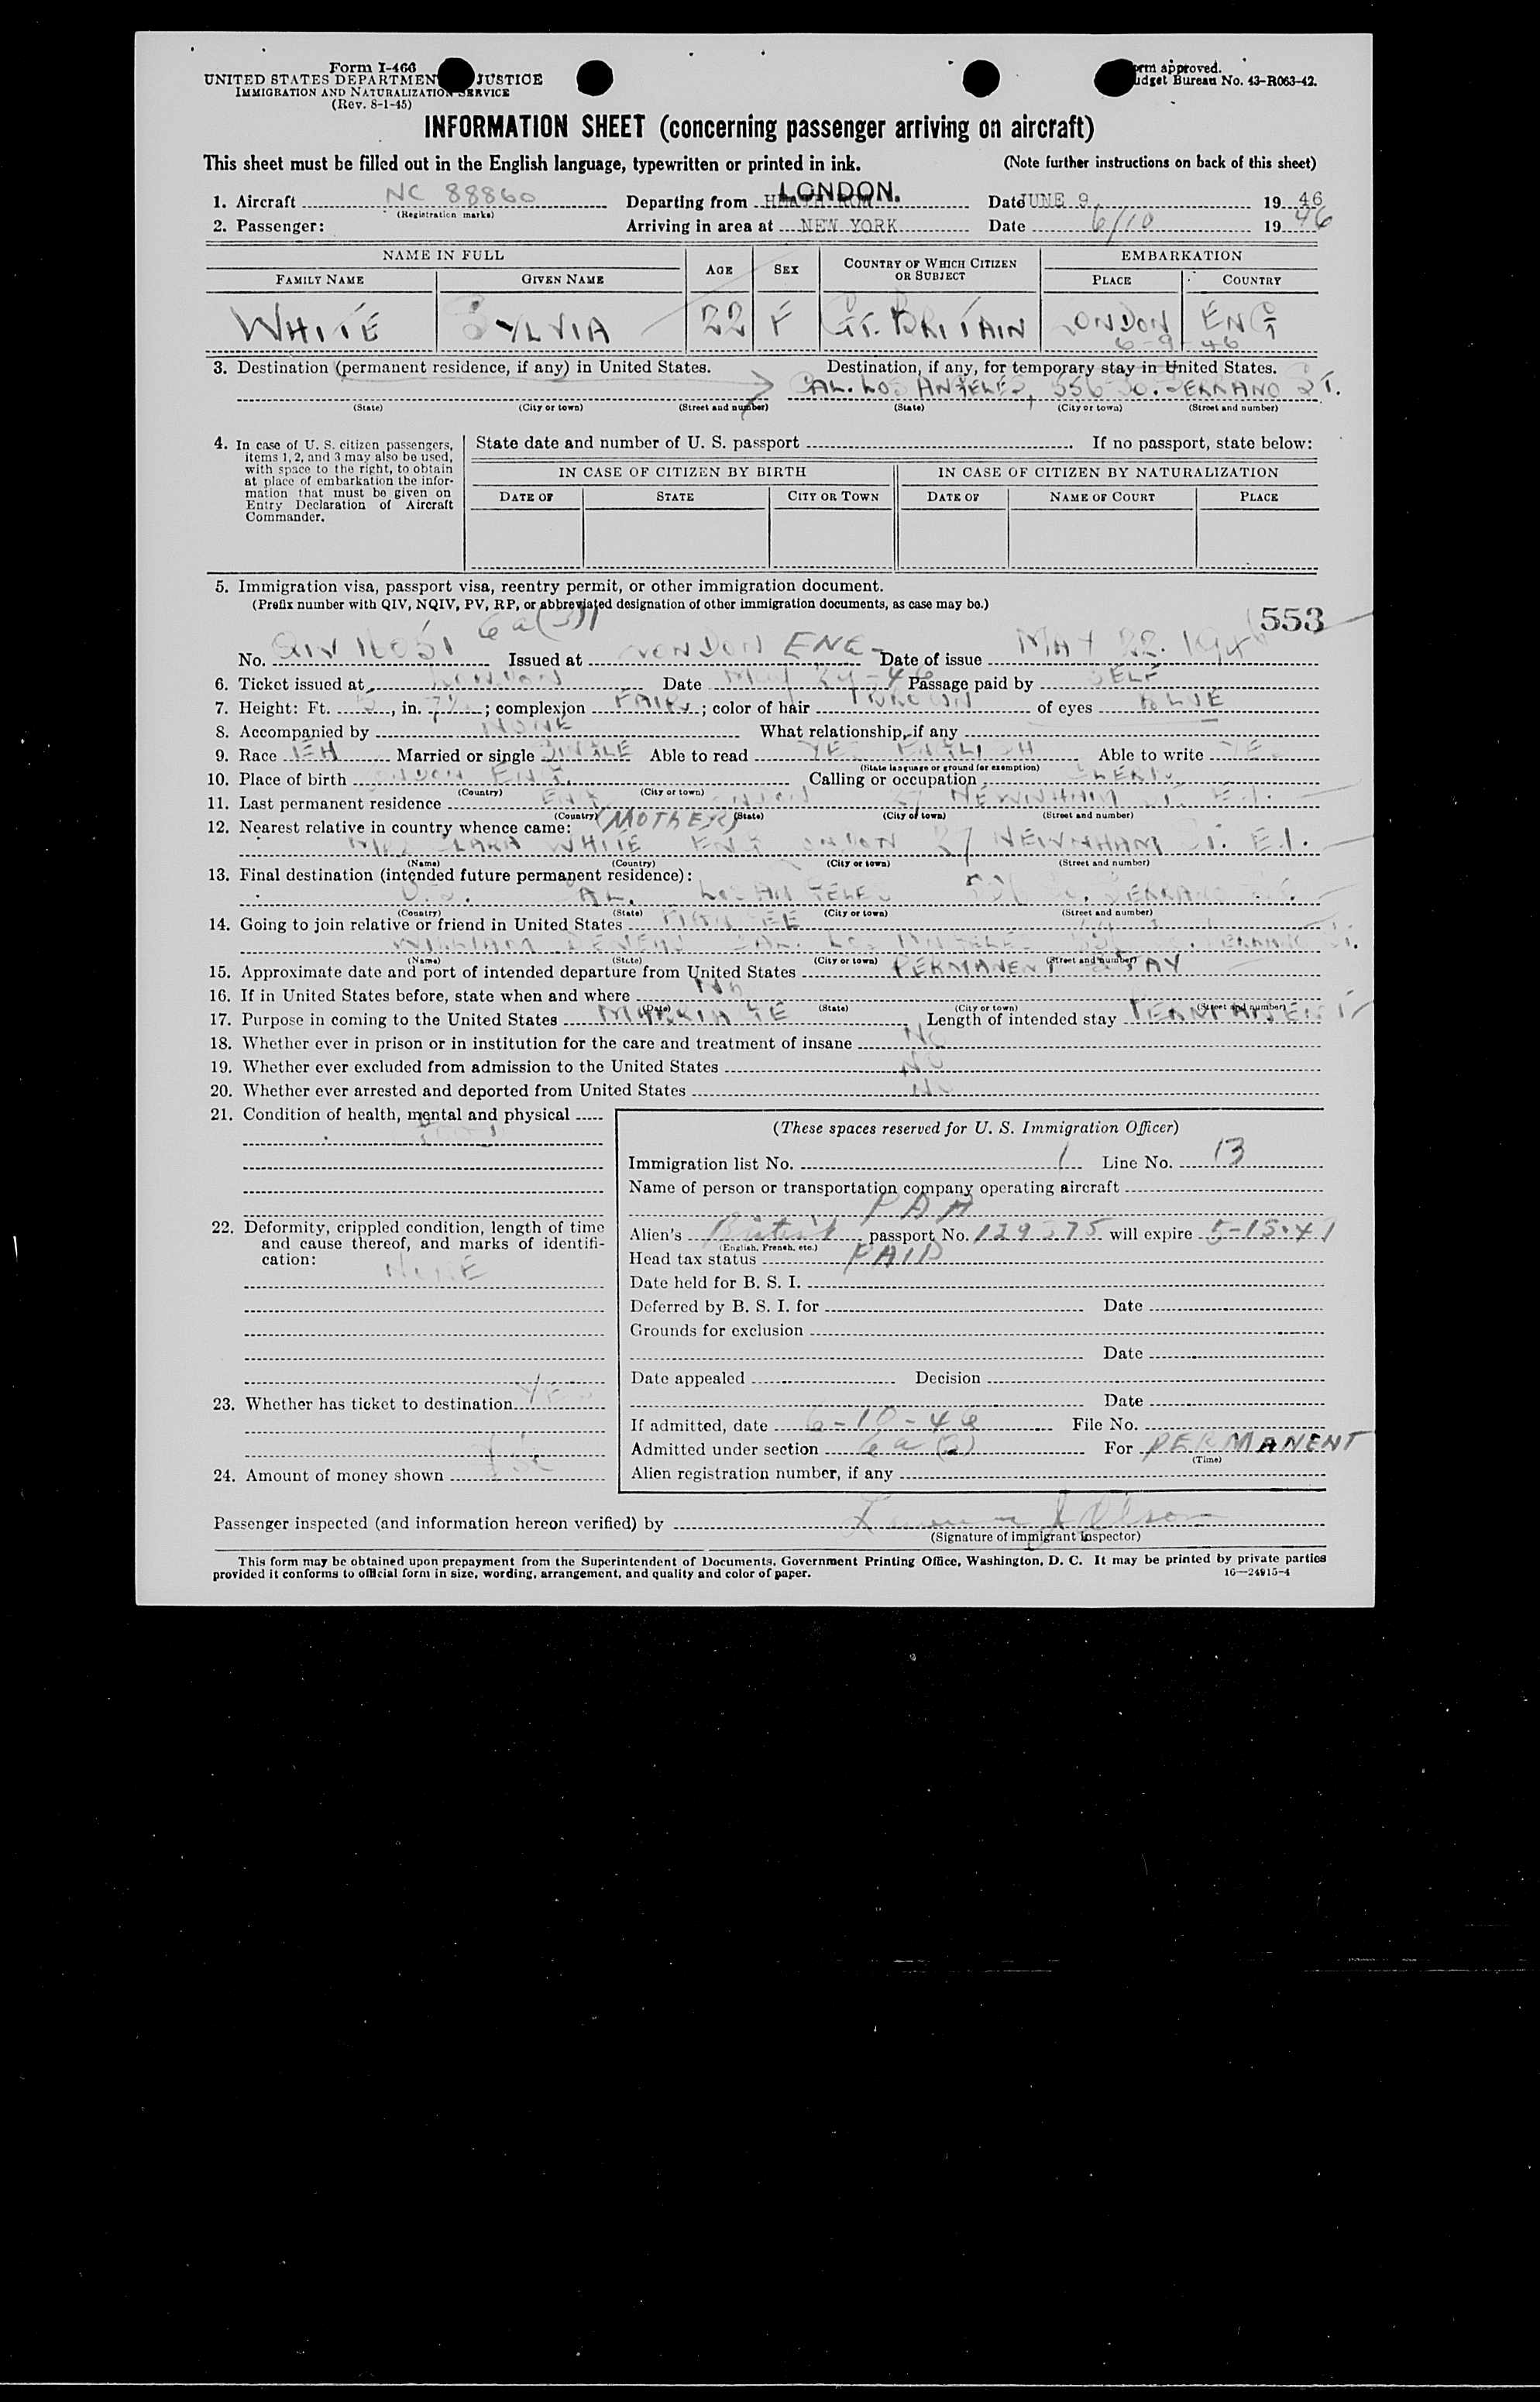 Form I-466
UNITED STATES DEPARTMEN JUSTICE
IMMIGRATION AND NATURALIZATION SERVICE
(Rev. 8-1-45)
orm approved.
udget Bureau No. 43-R063-42.
INFORMATION SHEET (concerning passenger arriving on aircraft)
This sheet must be filled out in the English language, typewritten or printed in ink. (Note further instructions on back of this sheet)
1. Aircraft NC 88860 Departing from LONDON. Date JUNE 9, 19 46
(Registration marks)
2. Passenger: Arriving in area at NEW YORK Date 6/10 19 46
NAME IN FULL AGE SEX COUNTRY OF WHICH CITIZEN OR SUBJECT EMBARKATION
FAMILY NAME GIVEN NAME PLACE COUNTRY
WHITE SYLVIA 22 F GT. BRITAIN LONDON ENG
6-9-46
3. Destination (permanent residence, if any) in United States. Destination, if any, for temporary stay in United States.
CAL. LOS ANGELES, 556 SO. SERRANO ST.
(State) (City or town) (Street and number) (State) (City or town) (Street and number)
4. In case of U. S. citizen passengers, items 1, 2, and 3 may also be used, with space to the right, to obtain at place of embarkation the information that must be given on Entry Declaration of Aircraft Commander.
State date and number of U. S. passport If no passport, state below:
IN CASE OF CITIZEN BY BIRTH IN CASE OF CITIZEN BY NATURALIZATION
DATE OF STATE CITY OR TOWN DATE OF NAME OF COURT PLACE
5. Immigration visa, passport visa, reentry permit, or other immigration document.
(Prefix number with QIV, NQIV, PV, RP, or abbreviated designation of other immigration documents, as case may be.)
6a(3)1 553
No. QIV 16051 Issued at LONDON ENG. Date of issue MAY 22. 1946
6. Ticket issued at LONDON Date May 29-46 Passage paid by SELF
7. Height: Ft. 5, in. 7½; complexion FAIR; color of hair BROWN of eyes BLUE
8. Accompanied by NONE What relationship, if any
9. Race Married or single SINGLE Able to read YES ENGLISH Able to write YES
(State language or ground for exemption)
10. Place of birth LONDON ENG. Calling or occupation CLERK
(Country) (City or town)
11. Last permanent residence ENG LONDON 27 NEWNHAM ST. E.1.
(Country) (State) (City of town) (Street and number)
12. Nearest relative in country whence came: (MOTHER)
MRS CLARA WHITE ENG LONDON 27 NEWNHAM ST. E.1.
(Name) (Country) (City or town) (Street and number)
13. Final destination (intended future permanent residence):
U.S. CAL. LOS ANGELES 556 SO. SERRANO ST.
(Country) (State) (City or town) (Street and number)
14. Going to join relative or friend in United States FIANCEE
WILLIAM CAL. LOS ANGELES 556 SO. SERRANO ST.
(Name) (State) (City or town) (Street and number)
15. Approximate date and port of intended departure from United States PERMANENT STAY
16. If in United States before, state when and where NO
(Date) (State) (City or town) (Street and number)
17. Purpose in coming to the United States MARRIAGE Length of intended stay PERMANENT
18. Whether ever in prison or in institution for the care and treatment of insane NO
19. Whether ever excluded from admission to the United States NO
20. Whether ever arrested and deported from United States NO
21. Condition of health, mental and physical
Good
22. Deformity, crippled condition, length of time and cause thereof, and marks of identification:
NONE
23. Whether has ticket to destination YES
24. Amount of money shown
(These spaces reserved for U. S. Immigration Officer)
Immigration list No. 1 Line No. 13
Name of person or transportation company operating aircraft
PAA
Alien's British passport No. 129375 will expire 5-15-47
(English, French, etc.)
Head tax status PAID
Date held for B. S. I.
Deferred by B. S. I. for Date
Grounds for exclusion
Date
Date appealed Decision
Date
If admitted, date 6-10-46 File No.
Admitted under section 6a(3) For PERMANENT
(Time)
Alien registration number, if any
Passenger inspected (and information hereon verified) by
(Signature of immigrant inspector)
This form may be obtained upon prepayment from the Superintendent of Documents, Government Printing Office, Washington, D. C. It may be printed by private parties
provided it conforms to official form in size, wording, arrangement, and quality and color of paper. 16—24915-4